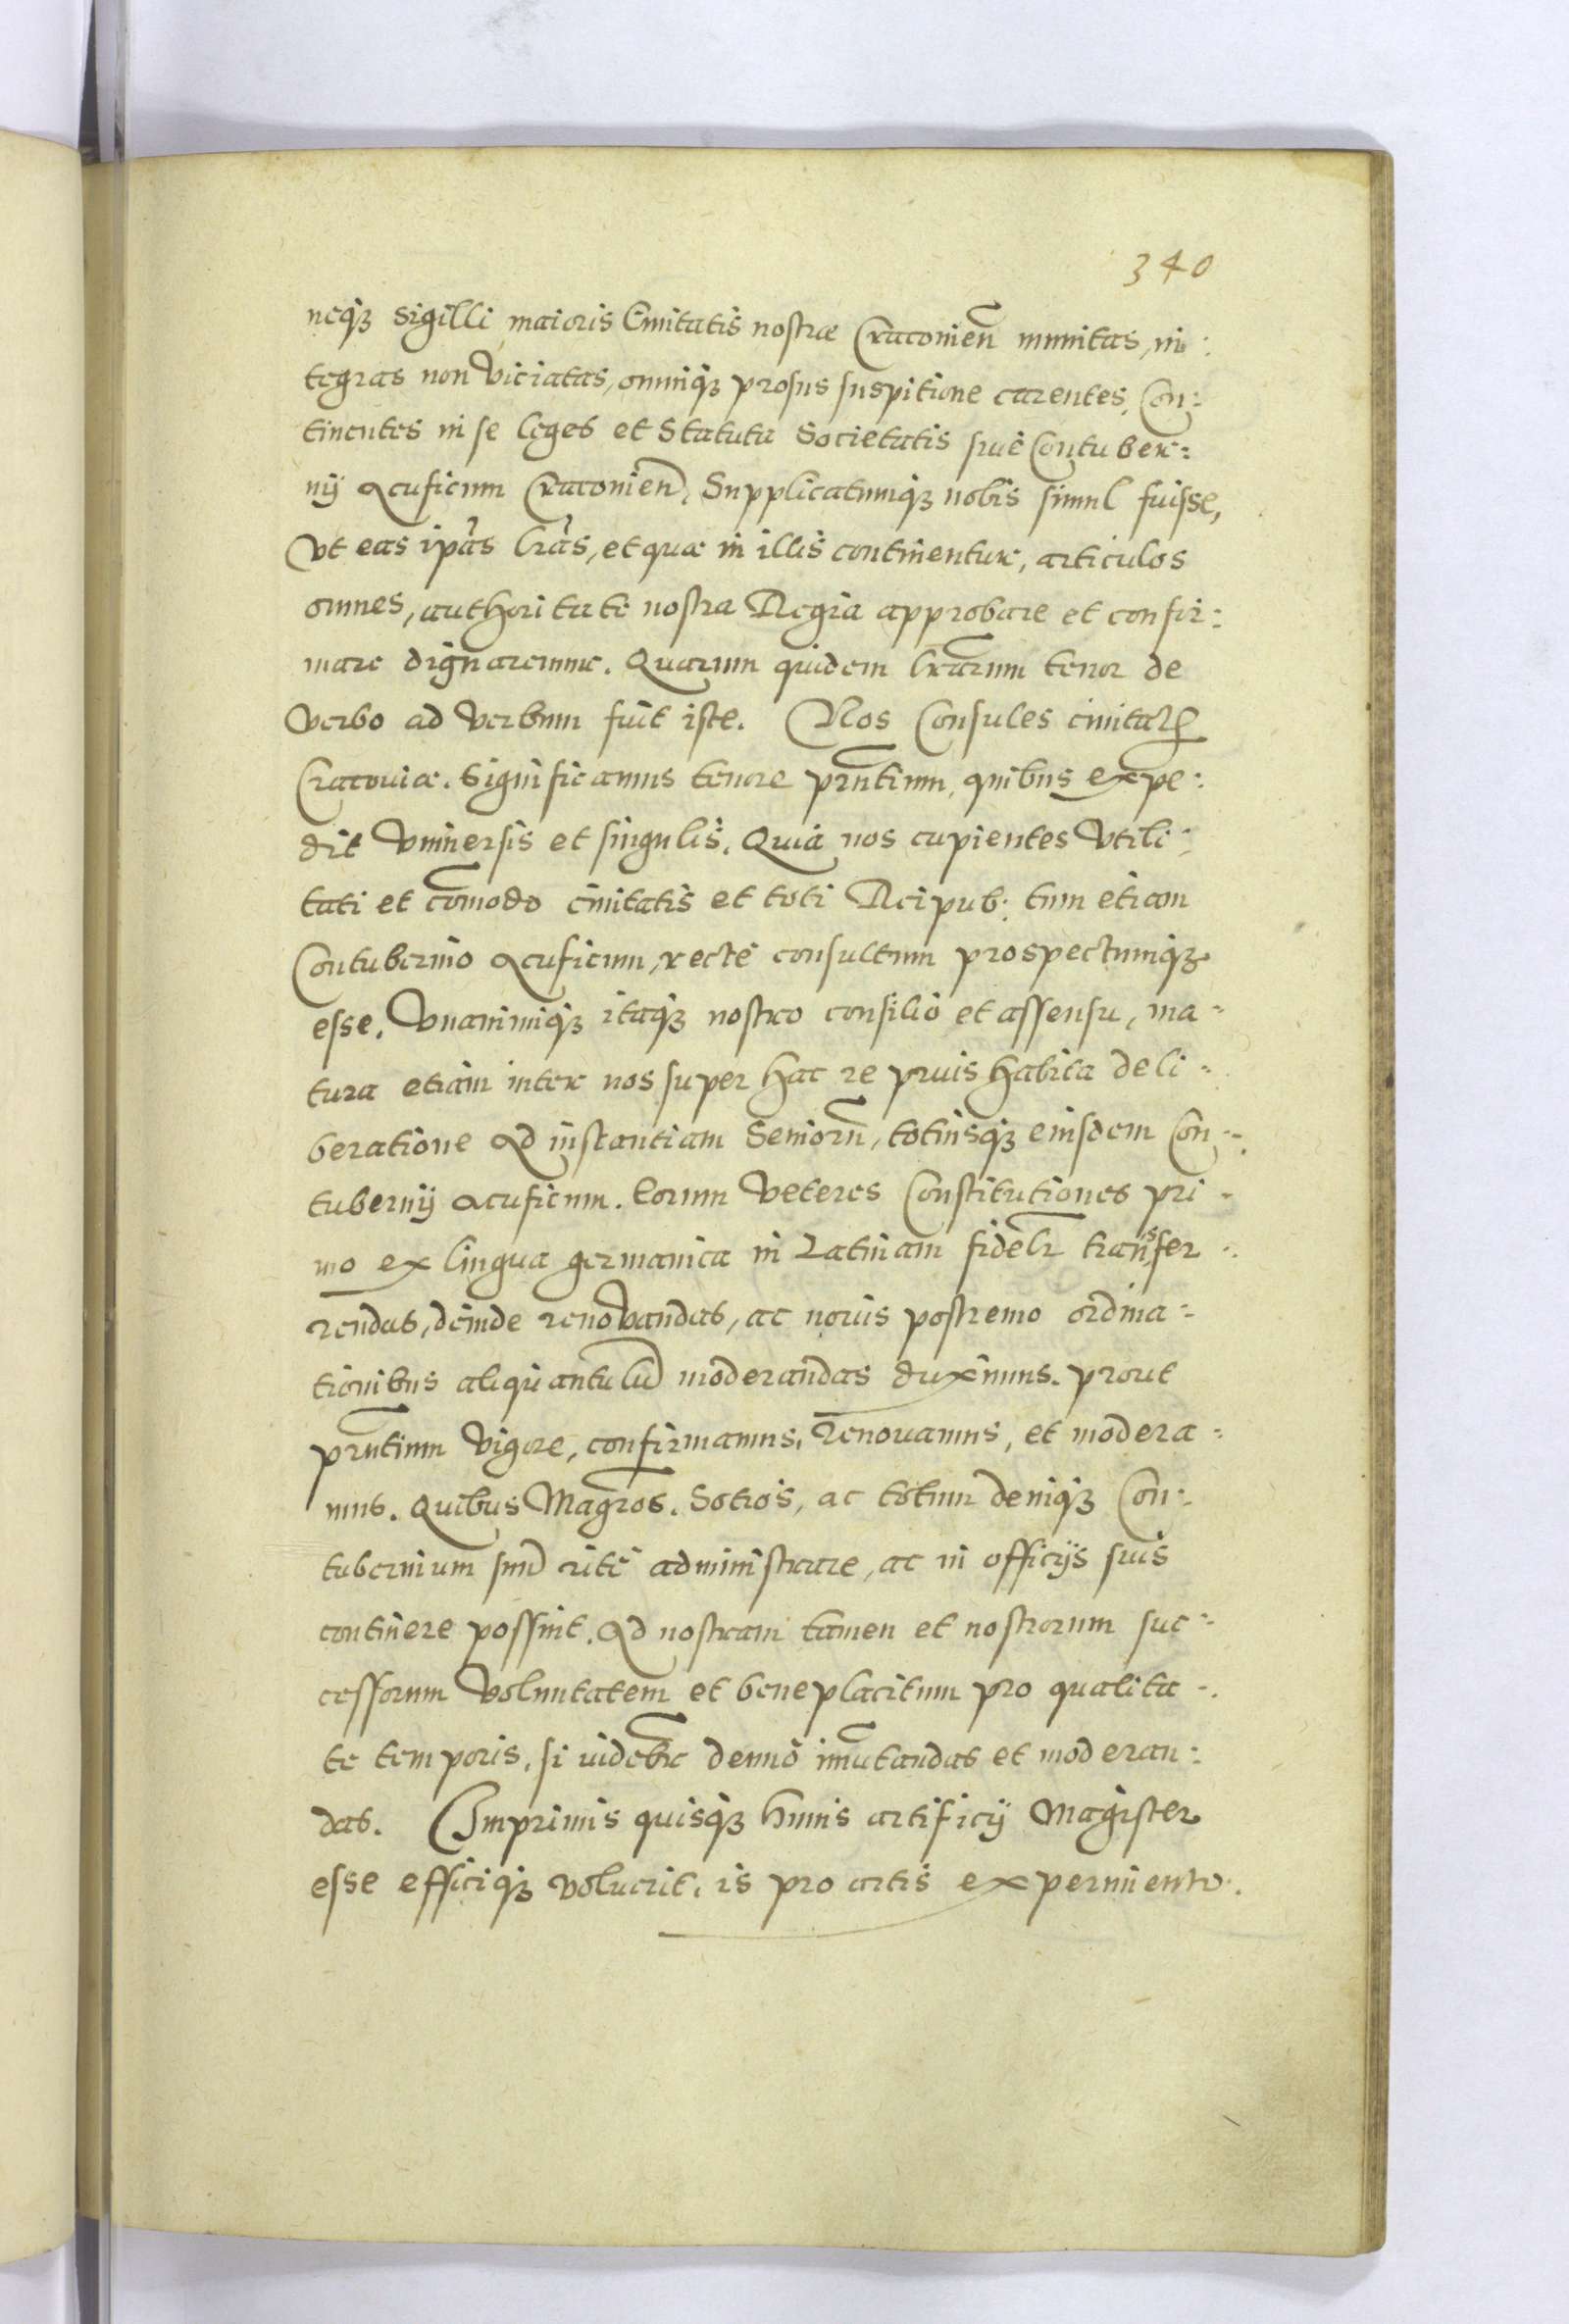 340
neq3 sigilli maioris Ciuitatis nostræ Cracouien̄ munitas, in:
tegras non viciatas, omniq3 prosus suspitione carentes, Con:
tinentes in se leges et Statuta Societatis siue Contuber:
nij acuficum Cracouien̄, Supplicatumq3 nobis simul fuisse,
Vt eas ip̄as lr̄as, et quæ in illis continentur, articulos
omnes, authoritate nostra Regia approbare et confir:
mare dignaremur. Quarum quidem lr̄arum tenor de
verbo ad verbum fuit iste. Nos Consules ciuitatis
Cracouiæ. Significamus tenore pn̄tium, quibus expe:
dit vniuersis et singulis. Quia nos cupientes vtili:
tati et com̄odo ciuitatis et toti Reipub: tum etiam
Contubernio acuficum, recte consultum prospectumq3
esse. Vnanimiq3 itaq3 nostro consilio et assensu, ma-
tura etiam inter nos super hac re prius habita deli-
beratione Ad instantiam Seniorū, totiusq3 eiusdem Con-
tubernij acuficum. Eorum veteres Constitutiones pri-
mo ex lingua germanica in Latinam fidelr̄ transfer-
rendas, deinde renovandas, ac novis postremo ordina-
tionibus aliquantulū moderandas duximus. prout
prn̄tium vigore, confirmamus, renouamus, et modera-
mus. Quibus Magr̄os. Sotios, ac totum deniq3 Con-
tubernium suū rite administrare, ac in officijs suis
continere possint. Ad nostram tamen et nostrorum suc-
cessorum voluntatem et beneplacitum pro qualita-
te temporis, si videbr̄ denuo im̄utandas et moderan:
das. Imprimis quisq3 huius artificij Magister
esse efficiq3 voluerit, is pro artis experimento.